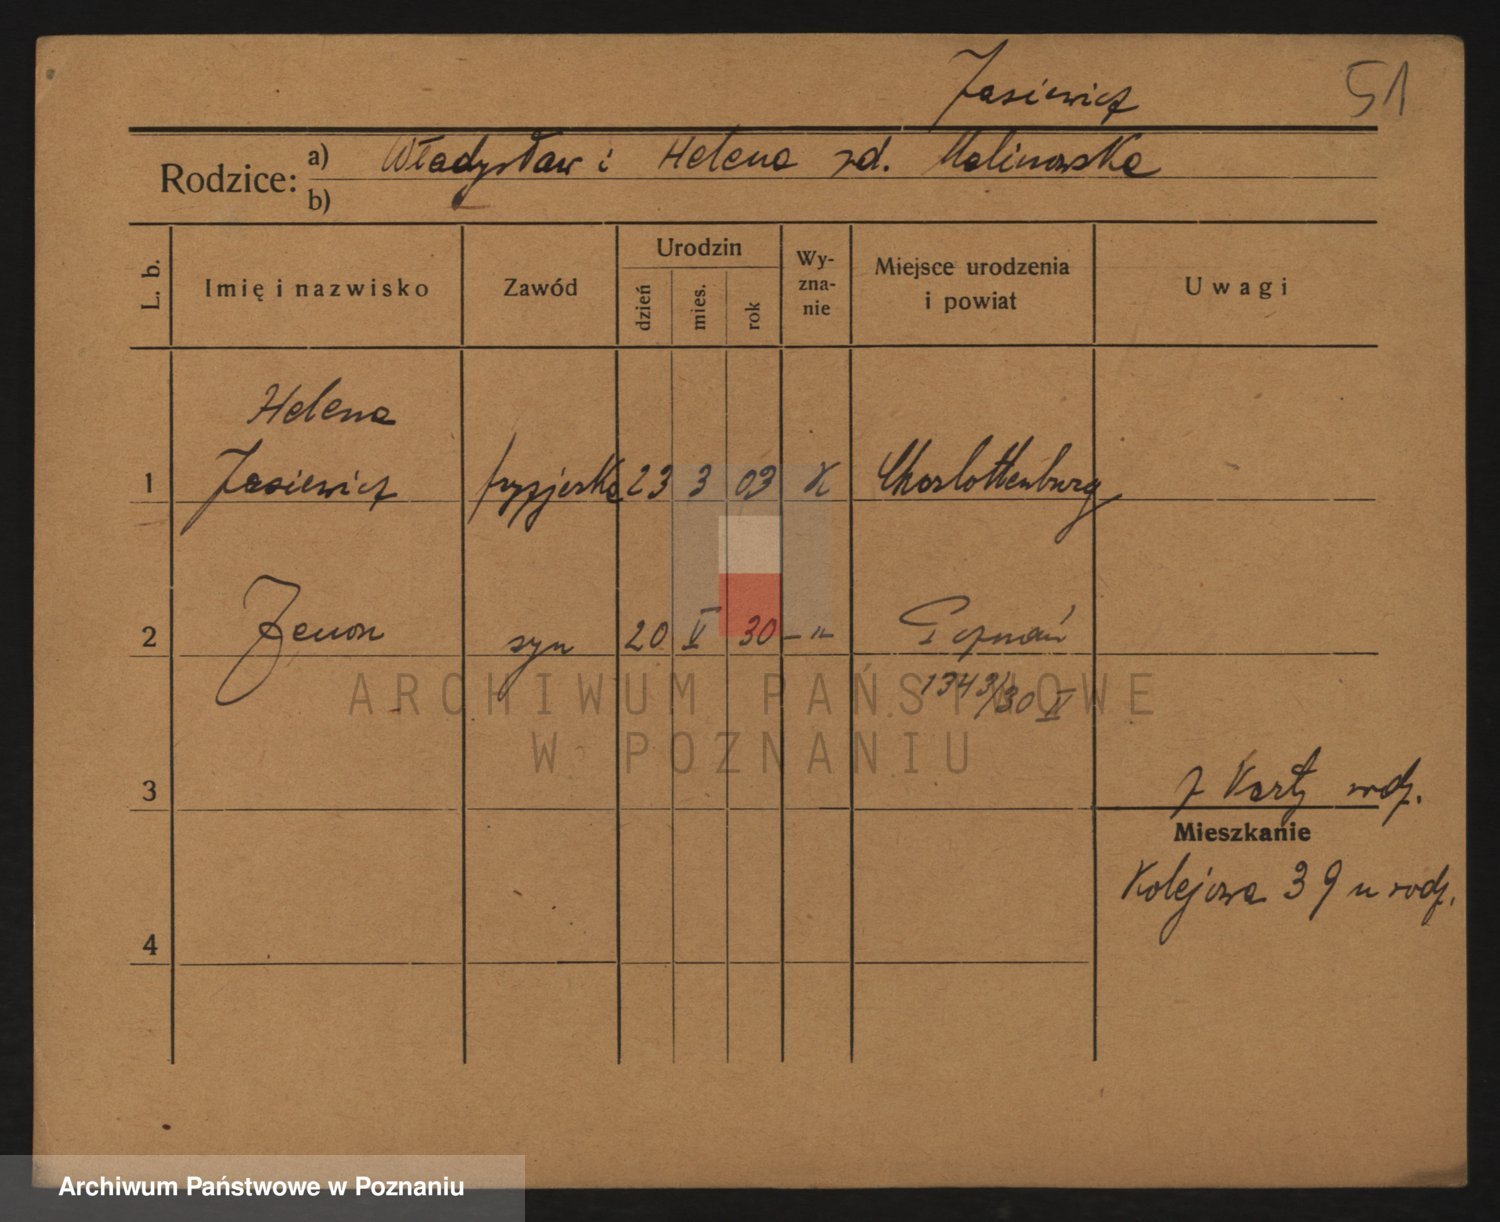 Jasiewicz 51
Rodzice: a) Władysław i Helena zd. Malinowska
b)
L. b. Imię i nazwisko Zawód Urodzin dzień mies. rok Wy-zna-nie Miejsce urodzenia i powiat Uwagi
Helena
1 Jasiewicz fryzjerka 23 3 03 K Charlottenburg
2 Zenon syn 20 V 30 – " – Poznań
1343/30 II
3 z Karty rodz.
Mieszkanie
Kolejowa 39 u rodz.
4
ARCHIWUM PAŃSTWOWE
W POZNANIU
Archiwum Państwowe w Poznaniu